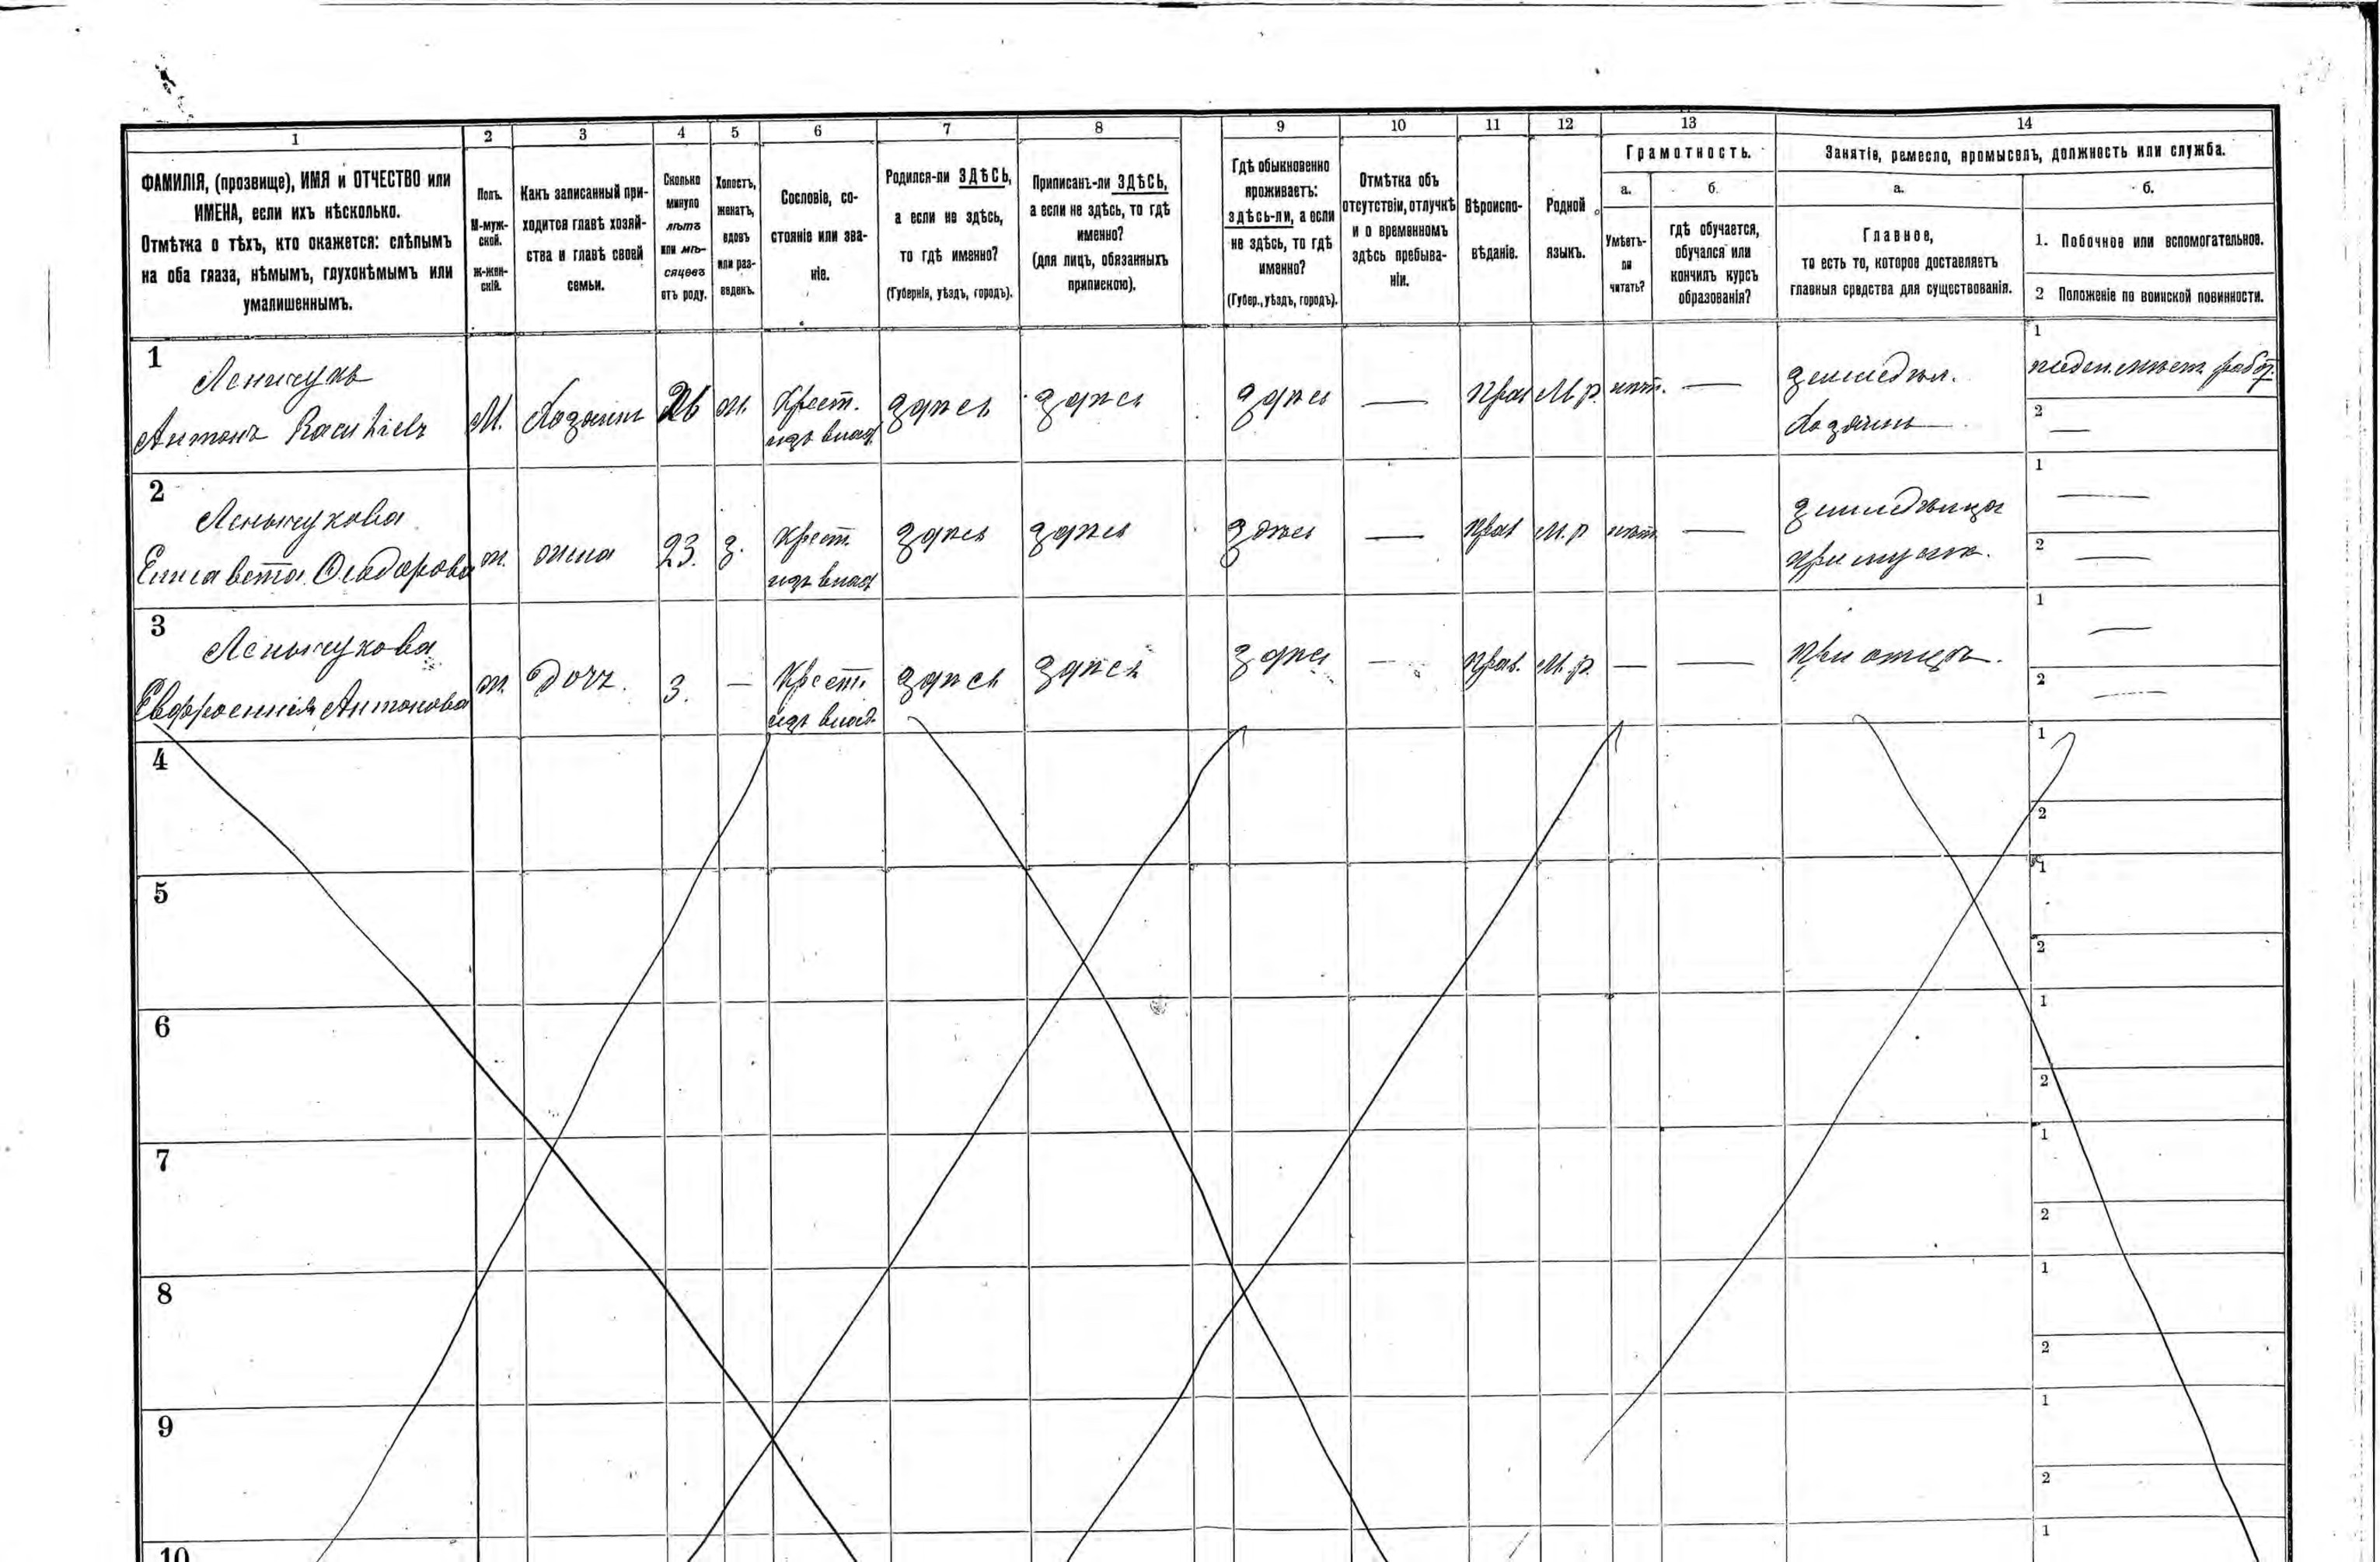 1 2 3 4 5 6 7 8 9 10 11 12 13 14
ФАМИЛІЯ, (прозвище), ИМЯ и ОТЧЕСТВО или
ИМЕНА, если ихъ нѣсколько.
Отмѣтка о тѣхъ, кто окажется: слѣпымъ
на оба глаза, нѣмымъ, глухонѣмымъ или
умалишеннымъ.
Полъ.
М-муж-
ской.
Ж-жен-
скій.
Какъ записанный при-
ходится главѣ хозяй-
ства и главѣ своей
семьи.
Сколько
минуло
лѣтъ
или мѣ-
сяцевъ
отъ роду.
Холостъ,
женатъ,
вдовъ
или раз-
веденъ.
Сословіе, со-
стояніе или зва-
ніе.
Родился-ли ЗДѢСЬ,
а если не здѣсь,
то гдѣ именно?
(Губернія, уѣздъ, городъ).
Приписанъ-ли ЗДѢСЬ,
а если не здѣсь, то гдѣ
именно?
(для лицъ, обязанныхъ
припискою).
Гдѣ обыкновенно
проживаетъ:
здѣсь-ли, а если
не здѣсь, то гдѣ
именно?
(Губер., уѣздъ, городъ).
Отмѣтка объ
отсутствіи, отлучкѣ
и о временномъ
здѣсь пребыва-
ніи.
Вѣроиспо-
вѣданіе.
Родной
языкъ.
Грамотность.
а.
Умѣетъ-
ли
читать?
б.
гдѣ обучается,
обучался или
кончилъ курсъ
образованія?
Занятіе, ремесло, промыселъ, должность или служба.
а.
Главное,
то есть то, которое доставляетъ
главныя средства для существованія.
б.
1. Побочное или вспомогательное.
2 Положеніе по воинской повинности.
1
Антонъ Васильевъ
М. Хозяинъ 26 ж. Крест.
изъ влад.
здѣсь здѣсь здѣсь — Прав М.р. нѣт. —
земледѣл.
Хозяинъ
1
2 —
2
Ленычукова
Елисавета Ѳеодорова
ж. жена 23. з. Крест.
изъ влад
здѣсь здѣсь здѣсь — Прав М.р нѣт —
при мужѣ.
1 —
2 —
3
Ленычукова
Евфросинія Антонова
ж. дочь. 3. — Крест.
изъ влад.
здѣсь здѣсь здѣсь — Прав. М.р. — —
при отцѣ.
1 —
2 —
4
1
2
5
1
2
6
1
2
7
1
2
8
1
2
9
1
2
10
1